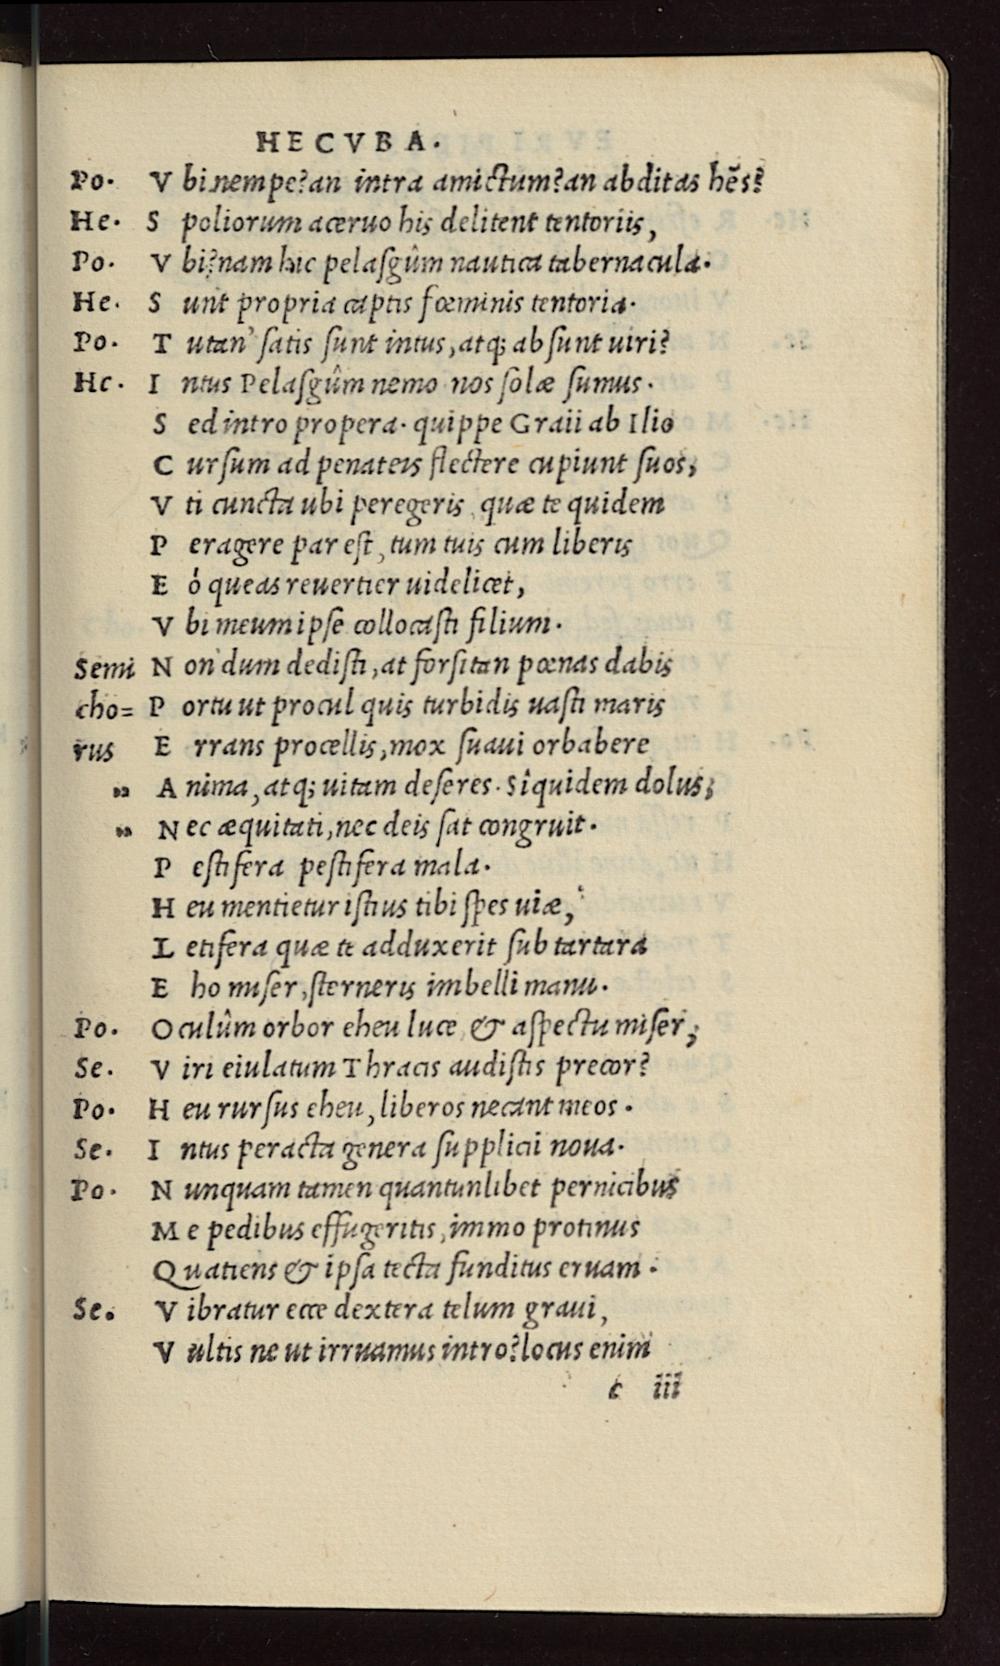 HECVBA.
Po. V bi nempe? an intra amictum? an abditas hēs?
He. S poliorum aceruo his delitent tentoriis,
Po. V bi? nam hic pelasgûm nautica tabernacula.
He. S unt propria captis fœminis tentoria.
Po. T utan' satis sunt intus, atq; absunt uiri?
He. I ntus Pelasgûm nemo nos solæ sumus.
S ed intro propera. quippe Graii ab Ilio
C ursum ad penateis flectere cupiunt suos,
V ti cuncta ubi peregeris, quæ te quidem
P eragere par est, tum tuis cum liberis
E ò queas reuertier uidelicet,
V bi meum ipse collocasti filium.
Semi N on dum dedisti, at forsitan pœnas dabis
cho= P ortu ut procul quis turbidis uasti maris
rus E rrans procellis, mox suaui orbabere
„ A nima, atq; uitam deseres. Siquidem dolus,
„ N ec æquitati, nec deis sat congruit.
P estifera pestifera mala.
H eu mentietur istius tibi spes uiæ,
L etifera quæ te adduxerit sub tartara
E ho miser, sterneris imbelli manu.
Po. O culûm orbor eheu luce & aspectu miser,
Se. V iri eiulatum Thracis audistis precor?
Po. H eu rursus eheu, liberos necant meos.
Se. I ntus peracta genera supplicii noua.
Po. N unquam tamen quantunlibet pernicibus
M e pedibus effugeritis, immo protinus
Q uatiens & ipsa tecta funditus eruam.
Se. V ibratur ecce dextera telum graui,
V ultis ne ut irruamus intro? locus enim
c iii